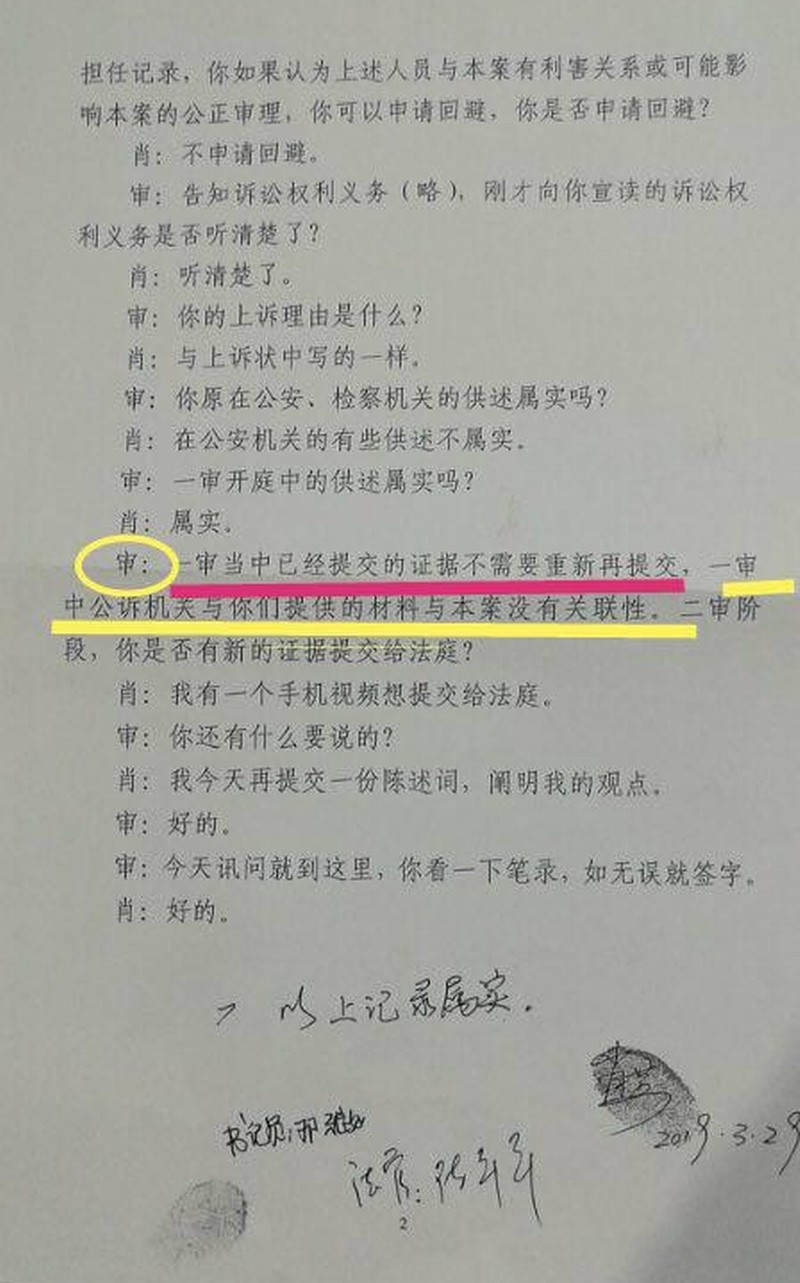 担任记录，你如果认为上述人员与本案有利害关系或可能影
响本案的公正审理，你可以申请回避，你是否申请回避？
肖：不申请回避。
审：告知诉讼权利义务（略），刚才向你宣读的诉讼权
利义务是否听清楚了？
肖：听清楚了。
审：你的上诉理由是什么？
肖：与上诉状中写的一样。
审：你原在公安、检察机关的供述属实吗？
肖：在公安机关的有些供述不属实。
审：一审开庭中的供述属实吗？
肖：属实。
审：一审当中已经提交的证据不需要重新再提交，一审
中公诉机关与你们提供的材料与本案没有关联性。二审阶
段，你是否有新的证据提交给法庭？
肖：我有一个手机视频想提交给法庭。
审：你还有什么要说的？
肖：我今天再提交一份陈述词，阐明我的观点。
审：好的。
审：今天讯问就到这里，你看一下笔录，如无误就签字。
肖：好的。
以上记录属实.
2019.3.29
书记员：邢
法官：
2